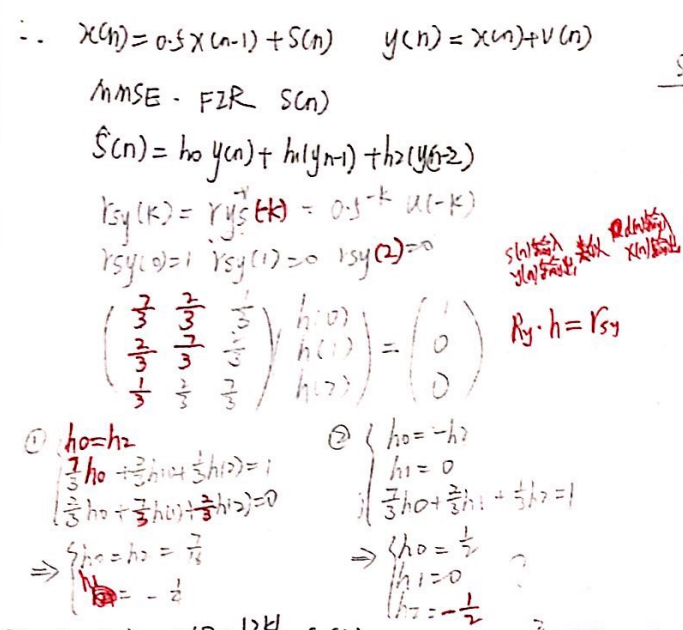 ∴ x(n)=0.5x(n-1)+S(n) y(n)=x(n)+V(n)
MMSE - FIR S(n)
Ŝ(n)=h0 y(n)+h1(yn-1)+h2(y(n-2)
rsy(k)= rys(-k) = 0.5^-k u(-k)
rsy(0)=1 rsy(1)=0 rsy(2)=0
s(n)输入 d(n)
y(n)输出, x(n)
( 7/3 2/3 1/3 ) ( h(0) ) = ( 1 )
( 2/3 7/3 2/3 ) ( h(1) ) = ( 0 )
( 1/3 2/3 7/3 ) ( h(2) ) = ( 0 )
Ry·h=rsy
① h0=h2
7/3 h0 + 2/3 h(1)+ 1/3 h(2)=1
2/3 h0 + 7/3 h(1)+ 2/3 h(2)=0
⇒ { h0=h2=
h1 = -
② { h0=-h2
h1=0
7/3 h0+ 2/3 h1 + 1/3 h2=1
⇒ { h0= 1/2
h1=0 ?
h2=- 1/2